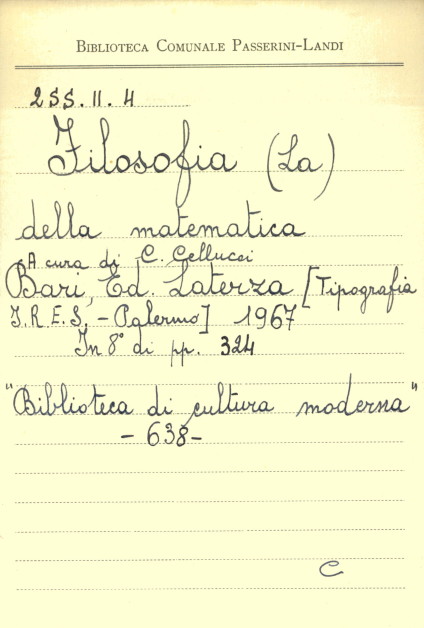 BIBLIOTECA COMUNALE PASSERINI-LANDI
2SS.II.4
Filosofia (La)
della matematica
A cura di C. Cellucci
Bari, Ed. Laterza [Tipografia
I.R.E.S. - Palermo] 1967
In 8° di pp. 324
"Biblioteca di cultura moderna"
- 638 -
C